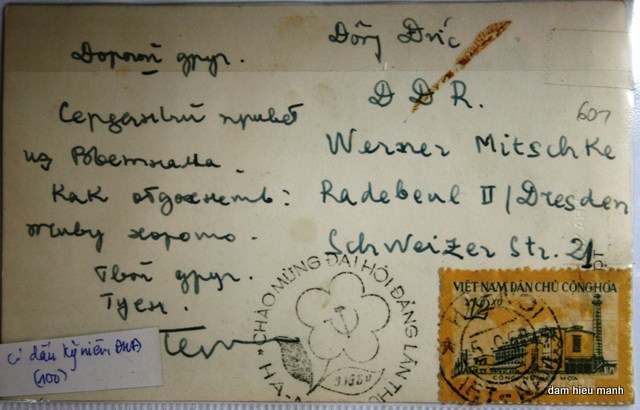 Дорогой друг.
Сердечный привет
из Вьетнама.
Как отдохнеть:
Живу хорошо.
Твой друг.
Туен.
Đông Đức
D D R.
607
Werner Mitschke
Radebeul II / Dresden
Schweizer Str. 21
"CHÀO MỪNG ĐẠI HỘI ĐẢNG LẦN THỨ
HÀ-
9.1960
VIỆT NAM DÂN CHỦ CỘNG HÒA
12 xu
HANOI
VIET-NAM
có dấu kỷ niệm ĐHĐ
(100)
dam hieu manh